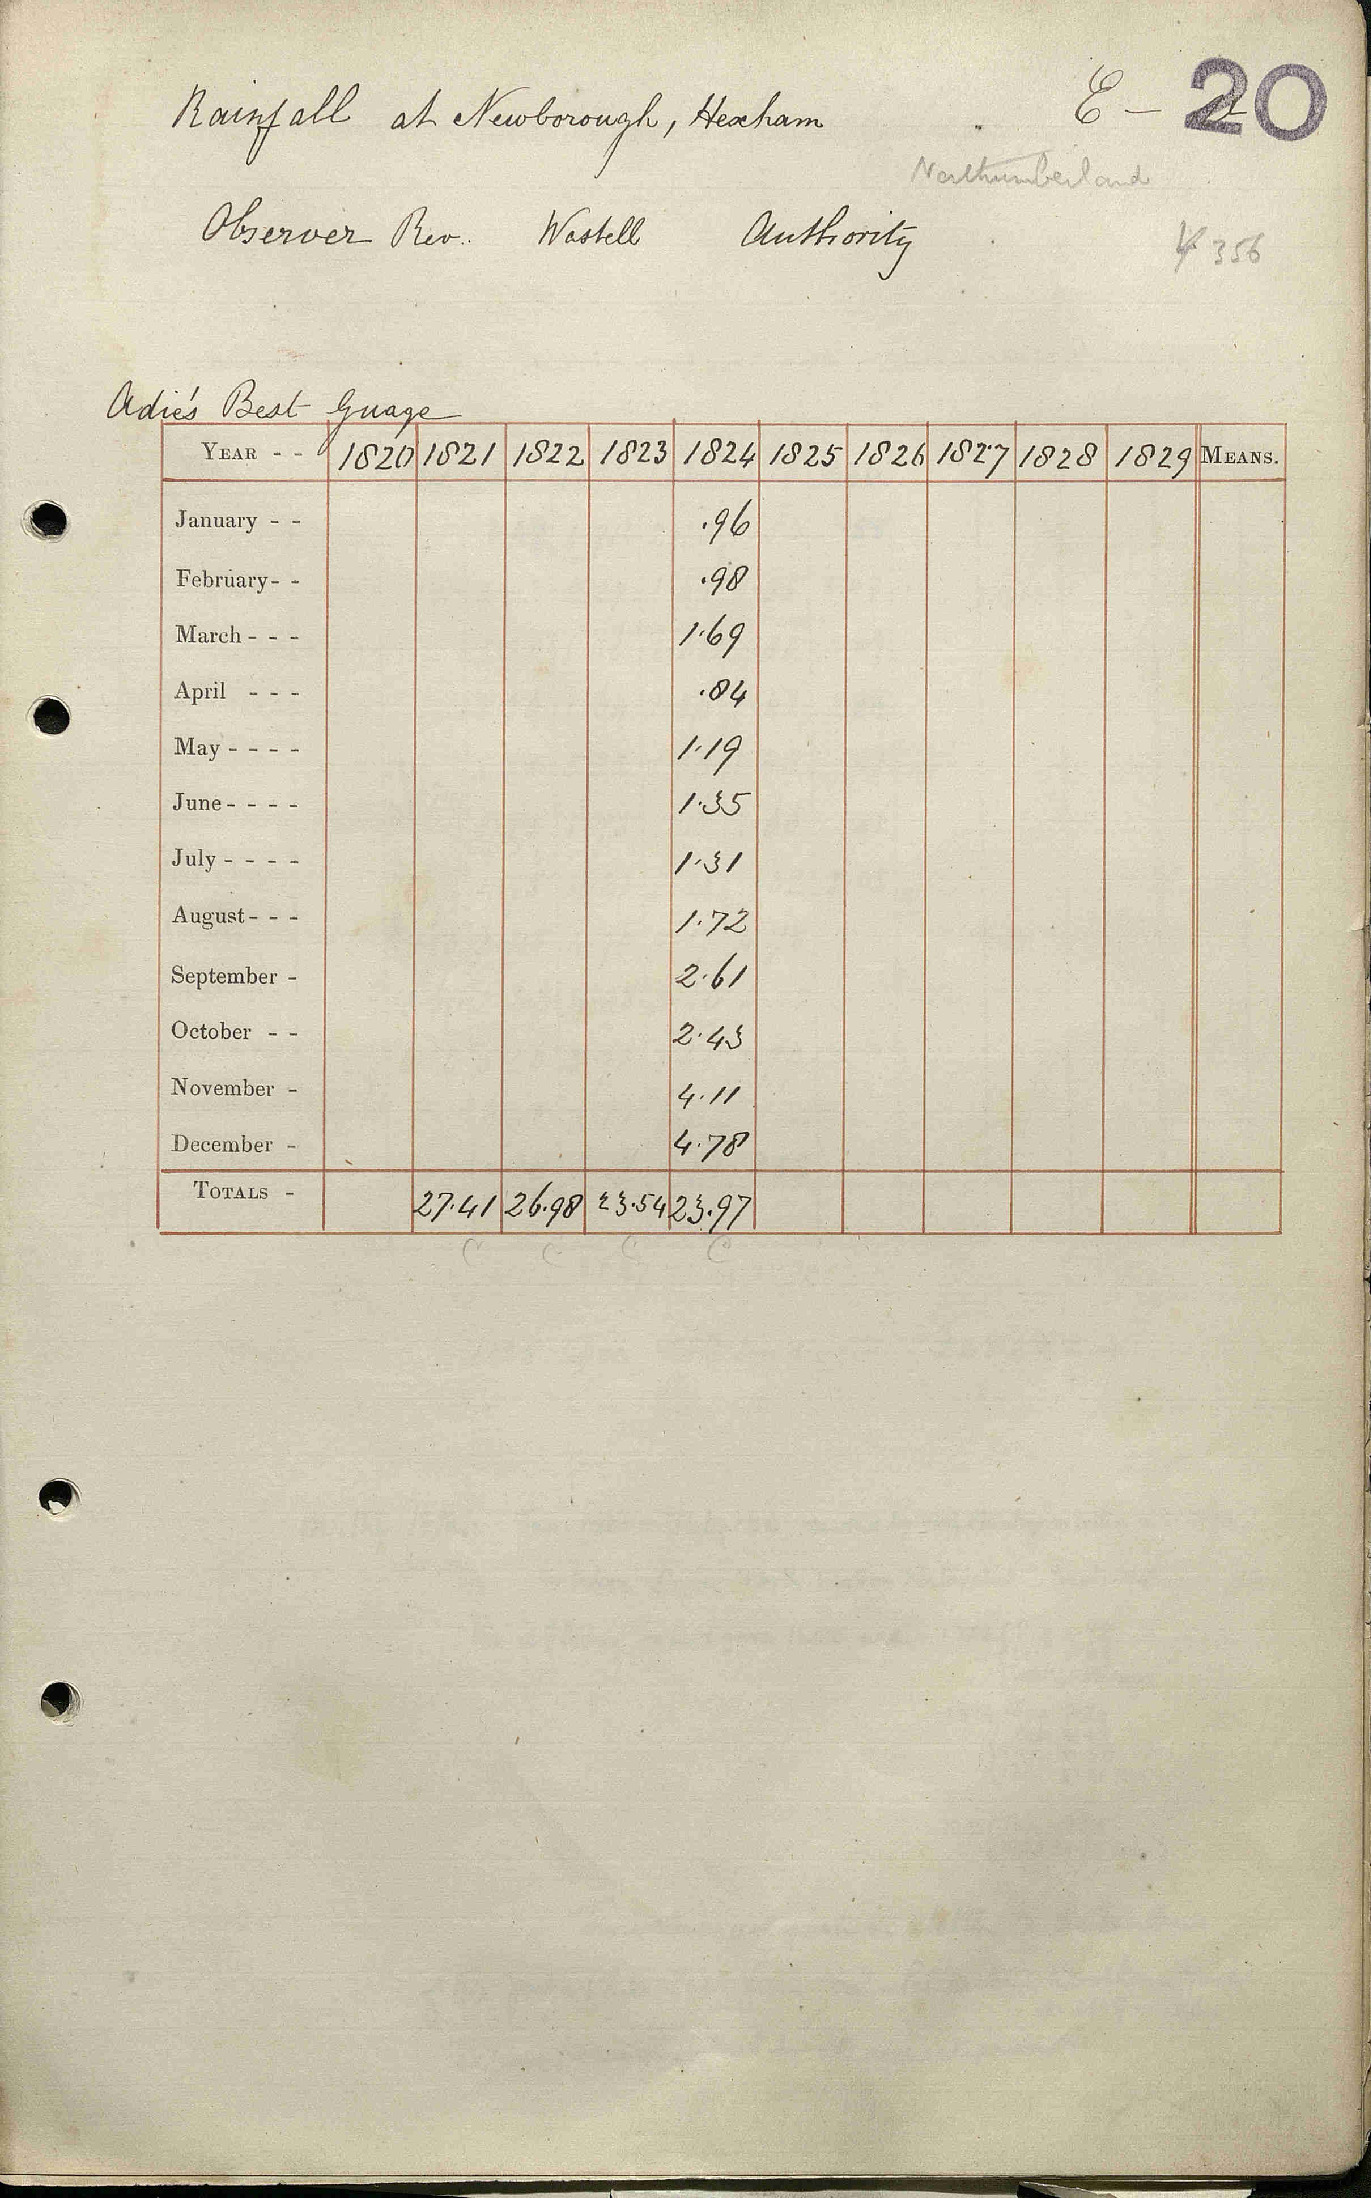 Rainfall at Newborough, Hexham E - 20
Northumberland
Observer Rev. Wastell Authority
356
Adie's Best Guage
YEAR - - 1820 1821 1822 1823 1824 1825 1826 1827 1828 1829 MEANS.
January - - .96
February - - .98
March - - - 1.69
April - - - .84
May - - - - 1.19
June - - - - 1.35
July - - - - 1.31
August - - - 1.72
September - 2.61
October - - 2.43
November - 4.11
December - 4.78
TOTALS - 27.41 26.98 23.54 23.97
C C C C